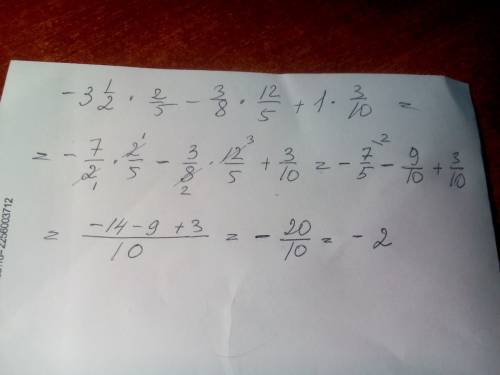 -3 1/2 · 2/5 - 3/8 · 12/5 + 1 · 3/10 =
= - 7/2 1 · 2 1/5 - 3/8 2 · 12 3/5 + 3/10 = - 7 2/5 - 9/10 + 3/10
= -14 - 9 + 3/10 = - 20/10 = - 2
=2256003712